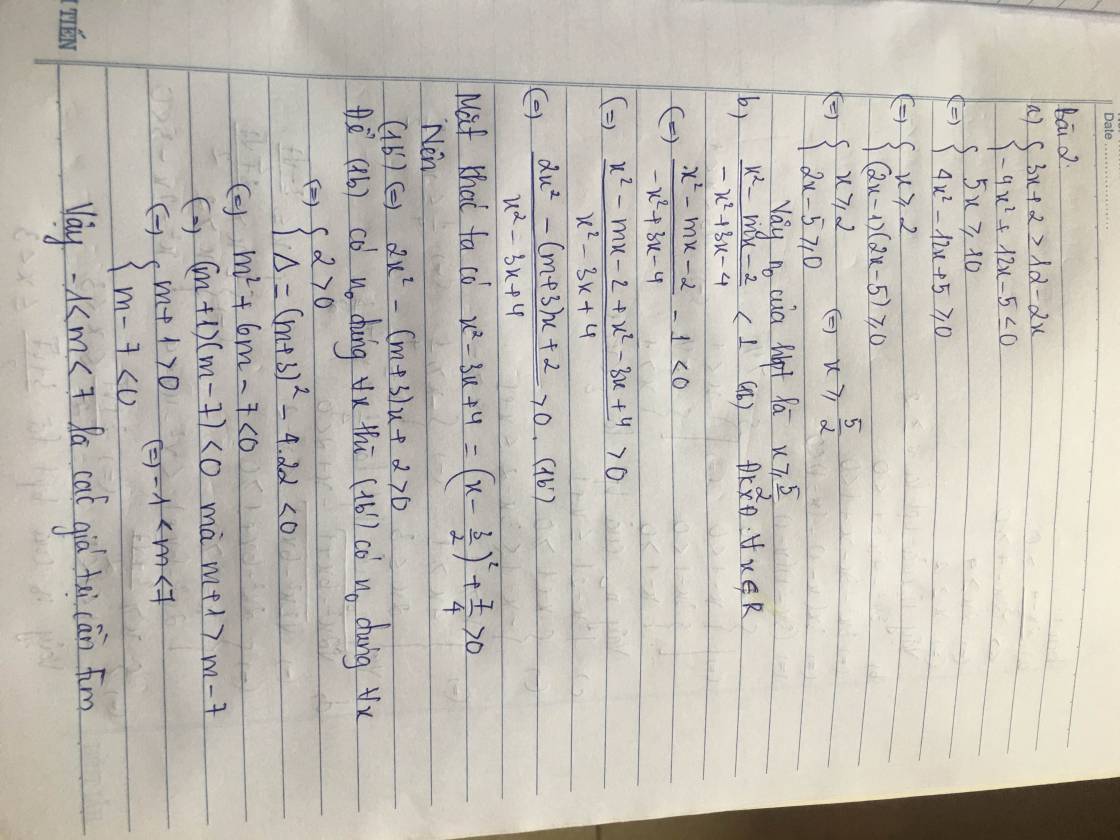 I TIẾN
Date
Bài 2.
a) { 3x+2 > 12-2x
{ -4x² + 12x - 5 ≤ 0
(=) { 5x ≥ 10
{ 4x² - 12x + 5 ≥ 0
(=) { x ≥ 2
{ (2x-1)(2x-5) ≥ 0
(=) { x ≥ 2 (=) x ≥ 5/2
{ 2x-5 ≥ 0
Vậy n₀ của hbpt là x ≥ 5/2
b) (x² - mx - 2)/(-x² + 3x - 4) < 1 (1b) ĐKXĐ: ∀x ∈ R
(=) (x² - mx - 2)/(-x² + 3x - 4) - 1 < 0
(=) (x² - mx - 2 + x² - 3x + 4)/(x² - 3x + 4) > 0
(=) (2x² - (m+3)x + 2)/(x² - 3x + 4) > 0. (1b')
Mặt khác ta có x² - 3x + 4 = (x - 3/2)² + 7/4 > 0
Nên
(1b') (=) 2x² - (m+3)x + 2 > 0
Để (1b) có n₀ đúng ∀x thì (1b') có n₀ đúng ∀x
(=) { 2 > 0
{ Δ = (m+3)² - 4.2.2 < 0
(=) m² + 6m - 7 < 0
(=) (m+1)(m-7) < 0 mà m+1 > m-7
(=) { m+1 > 0 (=) -1 < m < 7
{ m-7 < 0
Vậy -1 < m < 7 là các giá trị cần tìm